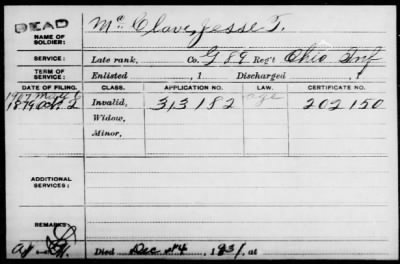 DEAD
Mc Clave, Jesse T.
NAME OF SOLDIER:
SERVICE: Late rank, Co. G 89 Reg't Ohio Inf
TERM OF SERVICE: Enlisted , 1 Discharged , 1
DATE OF FILING. CLASS. APPLICATION NO. LAW. CERTIFICATE NO.
1907
1879 Oct 2 Invalid, 313182 age 202150
Widow,
Minor,
ADDITIONAL SERVICES:
REMARKS:
Died Dec 14, 1931, at